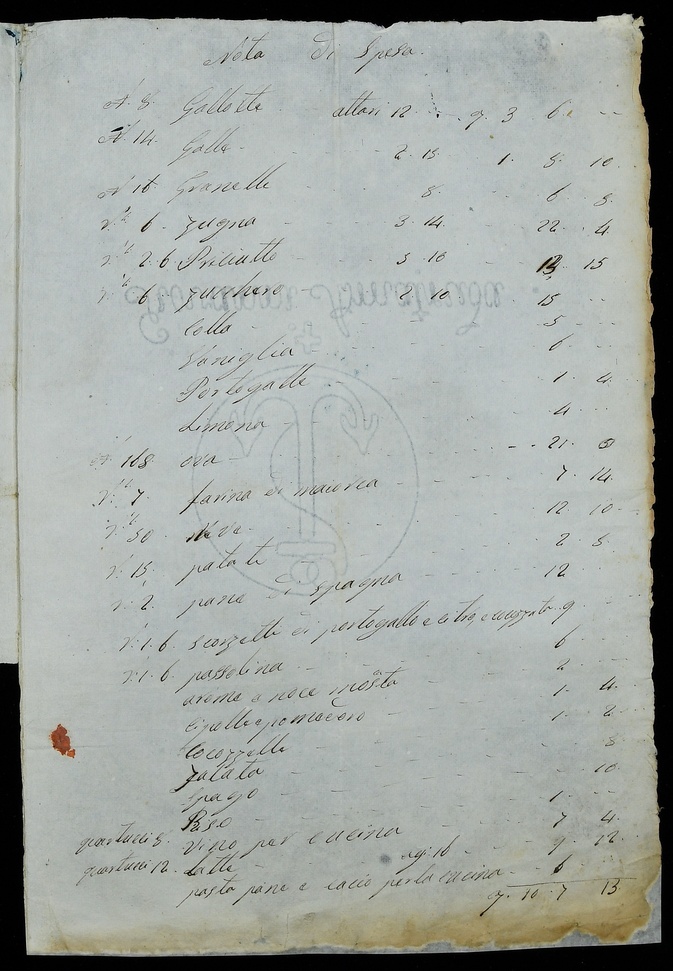 Nota di Spesa.
N. 8. Gallotte attari 12 - 9. 3 6. --
N. 14. Galle - 2. 15 1. 5. 10
N 16 Granelle 8. 6 8.
6. zugna 3. 14. 22. 4
2. 6 3 10 13. 15
6. zucchero 2 10 15
Colla 5
Vaniglia 6
Portogalle 1 4
Limona 4
N. 168 ova 21
7. farina di maiorca 7 14
50 neve 12 10
15 patate 2 5
2. pane di spagna 12
1. 6 scorzette di portogallo e citro, e 9
1. 6 passolina 6
aroma e noce mosta 2
cipolle e pomadoro 1. 4
Cocozzelle 1. 2
zalata 8
Spago 10
Riso 1
quartucci 5. vino per cucina 7 4
quartucci 12. latte 16 9 12
pasta pane e cacio per la cucina 6
9. 10. 7 13